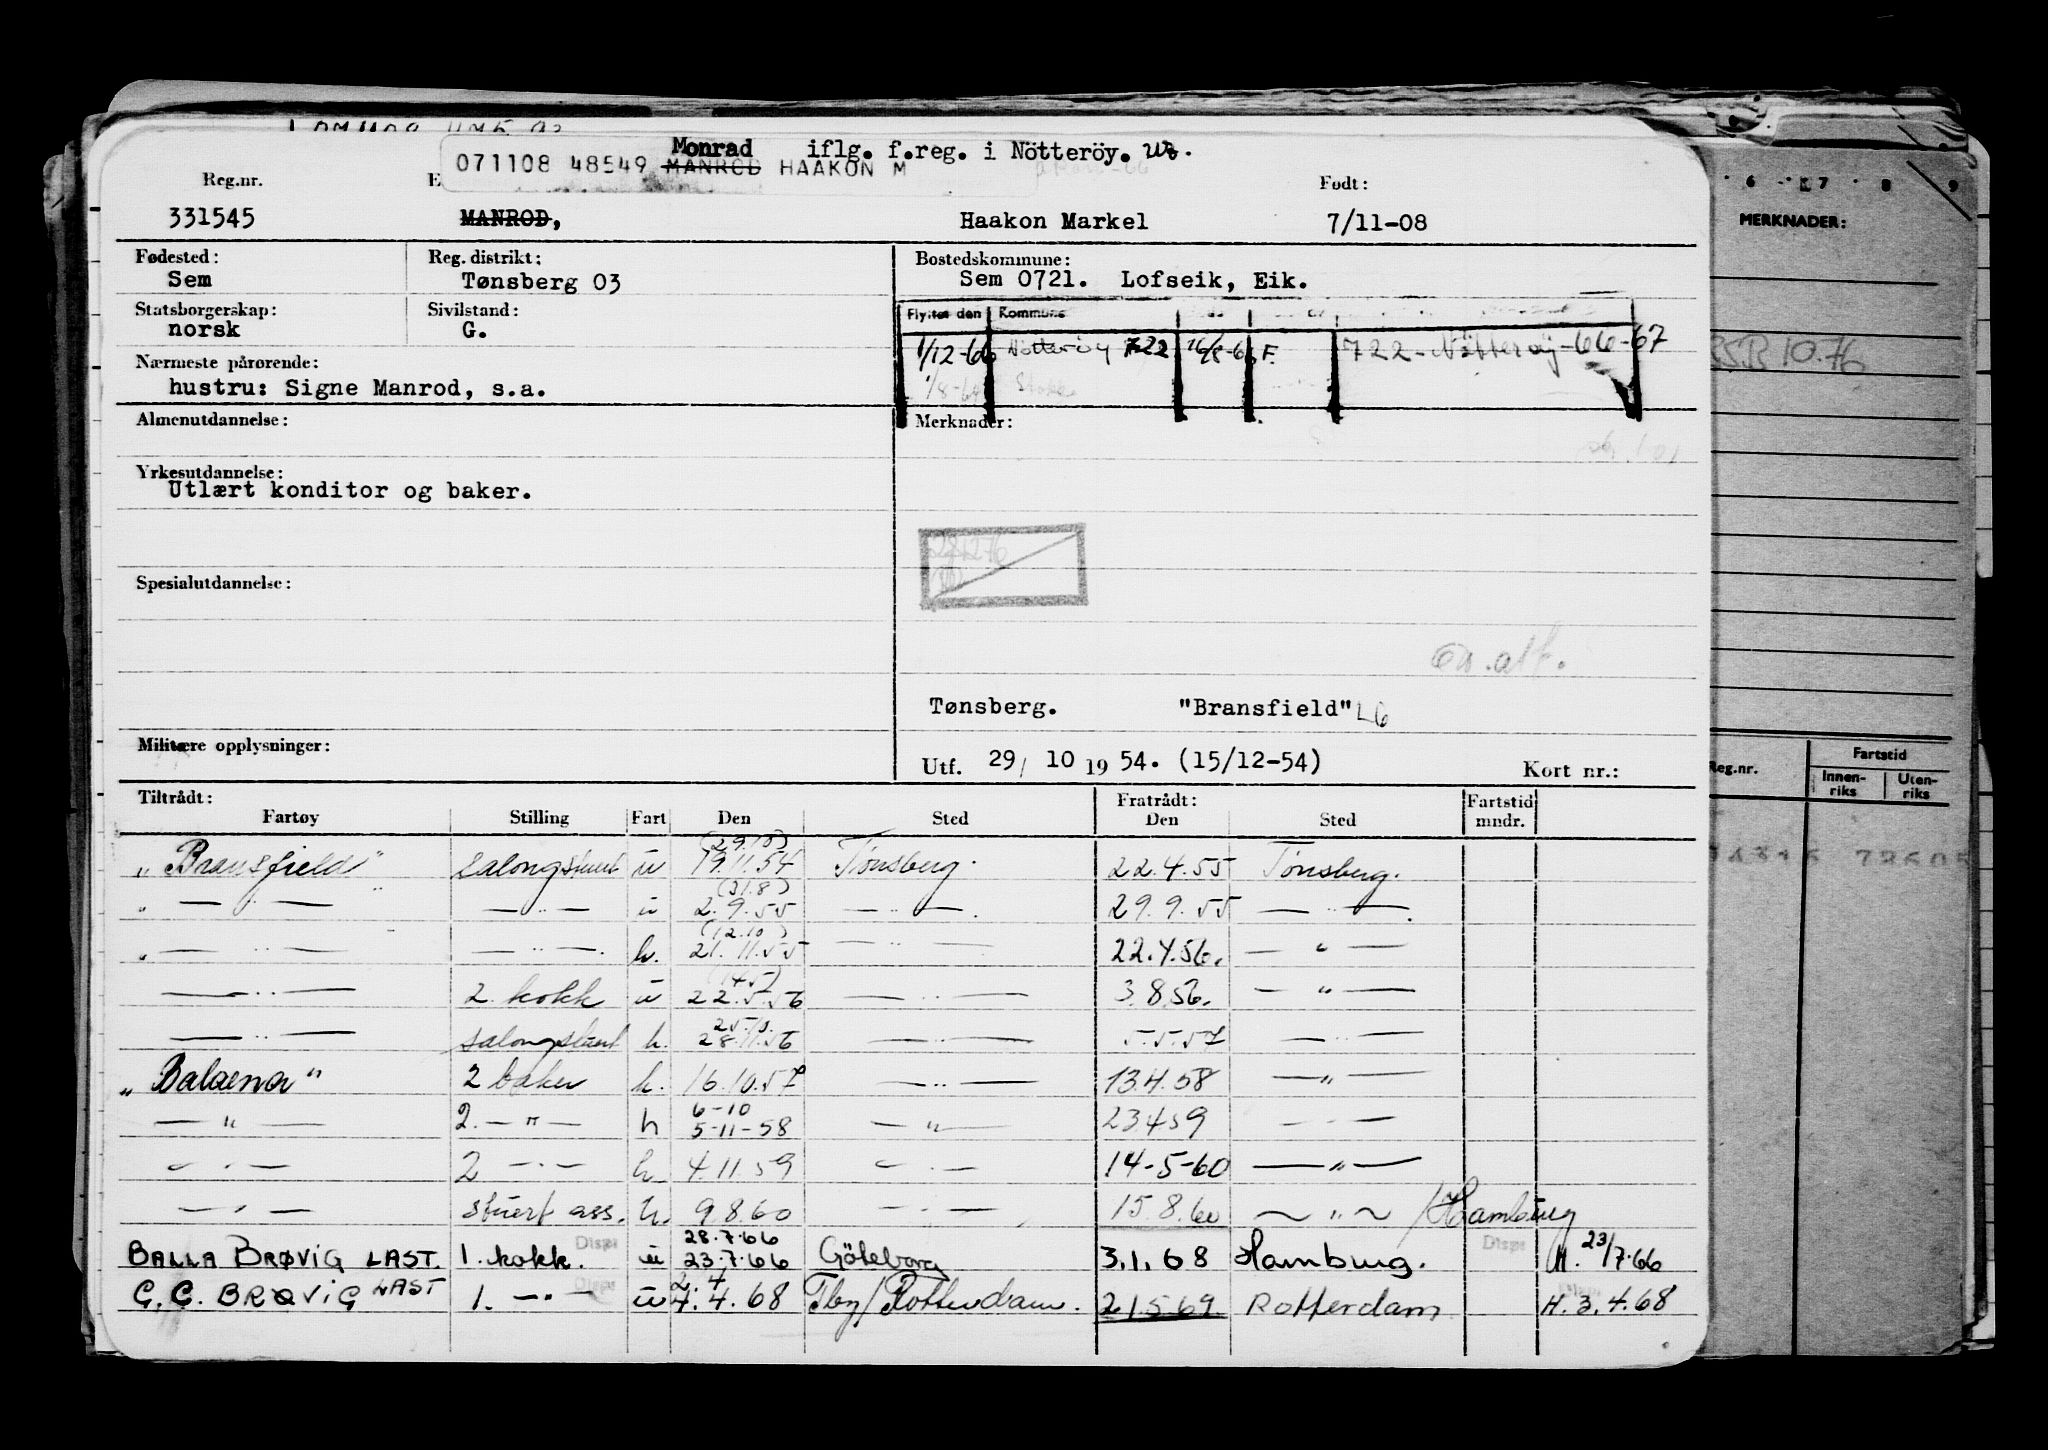 Monrad iflg. f.reg. i Nötteröy.
071108 48549 MANROD HAAKON M
Reg.nr. E Født:
331545 MANROD, Haakon Markel 7/11-08
Fødested: Reg. distrikt: Bostedskommune:
Sem Tønsberg 03 Sem 0721. Lofseik, Eik.
Statsborgerskap: Sivilstand:
norsk G.
Flyttet den Kommune
1/12-66 Nötteröy 722 16/8-66 F. 722-Nötteröy-66-67
1/8-64 Stokke
Nærmeste pårørende:
hustru: Signe Manrod, s.a.
Almenutdannelse: Merknader:
Yrkesutdannelse:
Utlært konditor og baker.
Spesialutdannelse:
Tønsberg. "Bransfield" LG
Militære opplysninger:
Utf. 29/ 10 1954. (15/12-54) Kort nr.:
Tiltrådt: Fratrådt: Fartstid
Fartøy Stilling Fart Den Sted Den Sted mndr.
(29.10)
"Bransfield" salongstuert u 19.11.54 Tønsberg. 22.4.55 Tønsberg.
(31.8)
" — " — — " — u 2.9.55 — " — 29.9.55 — " —
(12.10)
" — " — — " — h. 21.11.55 — " — 22.4.56. — " —
(14.5)
— " — 2. kokk u 22.5.56 — " — 3.8.56. — " —
25.10.
— " — salongstuert h. 28.11.56 — " — 5.5.57 — " —
"Balaena" 2 baker h. 16.10.57 — " — 13.4.58 — " —
6-10
— " — 2. — " — h 5-11-58 — " — 23.4.59 — " —
— " — 2 — " — h. 4.11.59 — " — 14-5-60 — " —
— " — stuert ass. h. 9.8.60 — " — 15.8.60 — " — /Hamburg
28.7.66
BALLA BRØVIG LAST. 1. kokk. u 23.7.66 Göteborg 3.1.68 Hamburg. M. 23/7.66
2. 4
G.C. BRØVIG LAST 1. — " — u 4.4.68 Tbg/Rotterdam. 21.5.69. Rotterdam H. 3.4.68
6 7 8 9
MERKNADER:
RSR 10.76
Reg.nr. Fartstid
Innen-riks Uten-riks